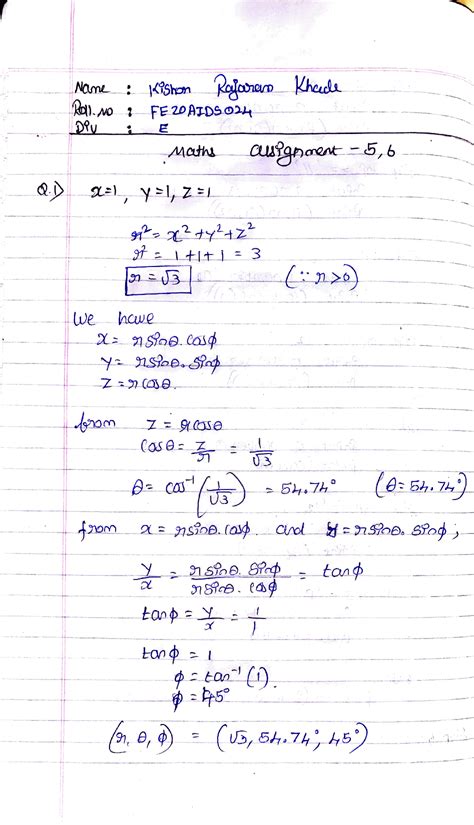 Name : Kishan Rajaram Khade
Roll.no : FE20AIDS024
Div : E
Maths assignment - 5,6
Q.1) x=1, y=1, z=1
r² = x²+y²+z²
r² = 1+1+1 = 3
r = √3 (∵ r>0)
We have
x = r sinθ.cosϕ
y = r sinθ.sinϕ
z = r cosθ.
from z = r cosθ
cosθ = z/r = 1/√3
θ = cos⁻¹(1/√3) = 54.74° (θ = 54.74°)
from x = r sinθ.cosϕ. and y = r sinθ.sinϕ,
y/x = r sinθ.sinϕ / r sinθ.cosϕ = tanϕ
tanϕ = y/x = 1/1
tanϕ = 1
ϕ = tan⁻¹(1).
ϕ = 45°
(r, θ, ϕ) = (√3, 54.74°, 45°)